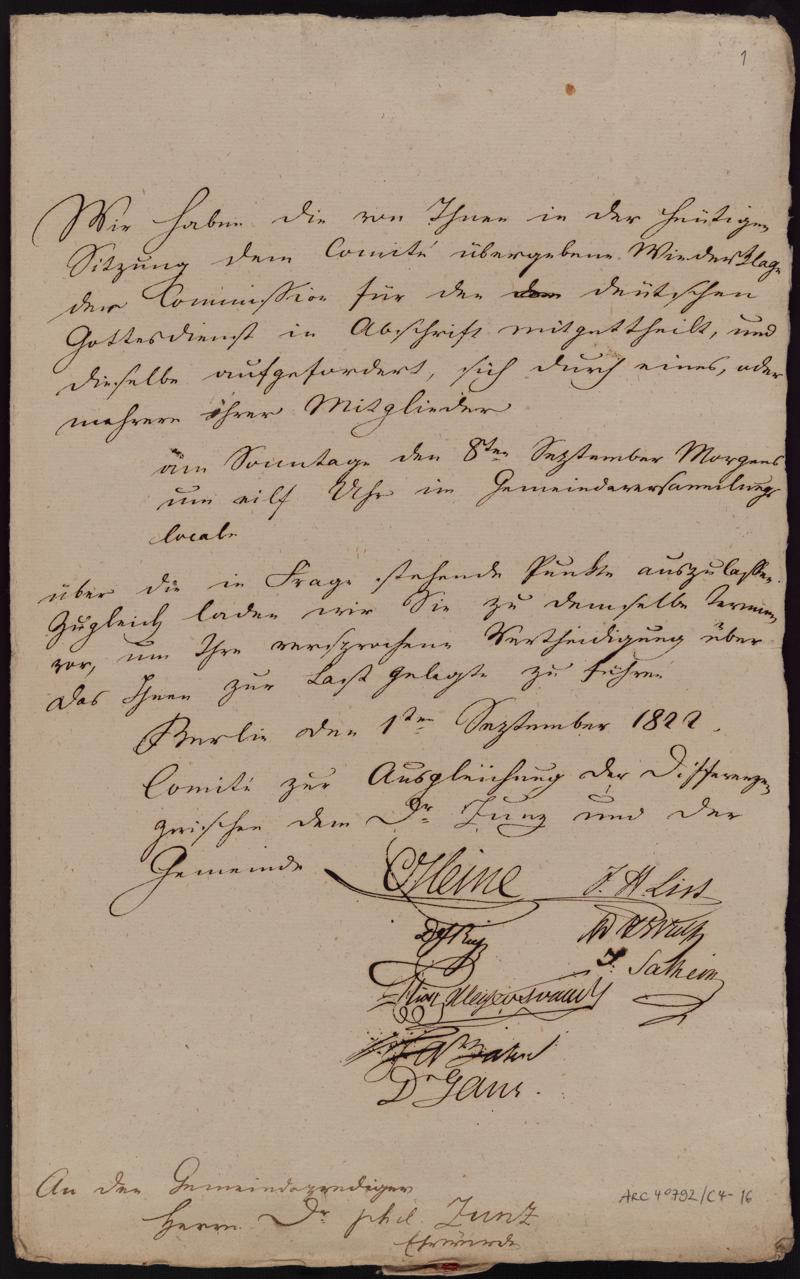 1
Wir haben die von Ihnen in der heutigen
Sitzung dem Comité übergebene Wiederklage
der Commission für den deutschen
Gottesdienst in Abschrift mitgetheilt, und
dieselbe aufgefordert, sich durch eines, oder
mehrere ihrer Mitglieder
am Sonntage den 8ten September Morgens
um eilf Uhr im Gemeindeversammlungs
locale
über die in Frage stehende Punkte auszulassen.
Zugleich laden wir Sie zu demselbe Termin
vor, um Ihre versprochene Vertheidigung über
das Ihnen zur Last gelegte zu führen
Berlin den 1ten September 1822.
Comité zur Ausgleichung der Differenzen
zwischen dem Dr Zunz und der
Gemeinde
Heine J. H. List
Dr Gans.
An den Gemeindeprediger
Herrn Dr phil Zunz
Ehrwürde
ARC 4° 792/C4-16